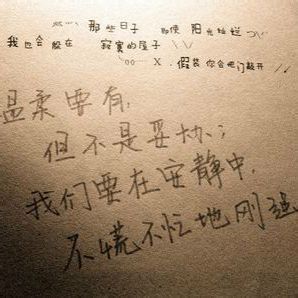 那些日子 即使 阳光灿烂
我也会躲在 寂寞的屋子
X. 假装你会把门敲开
温柔要有,
但不是妥协;
我们要在安静中,
不慌不忙地刚强